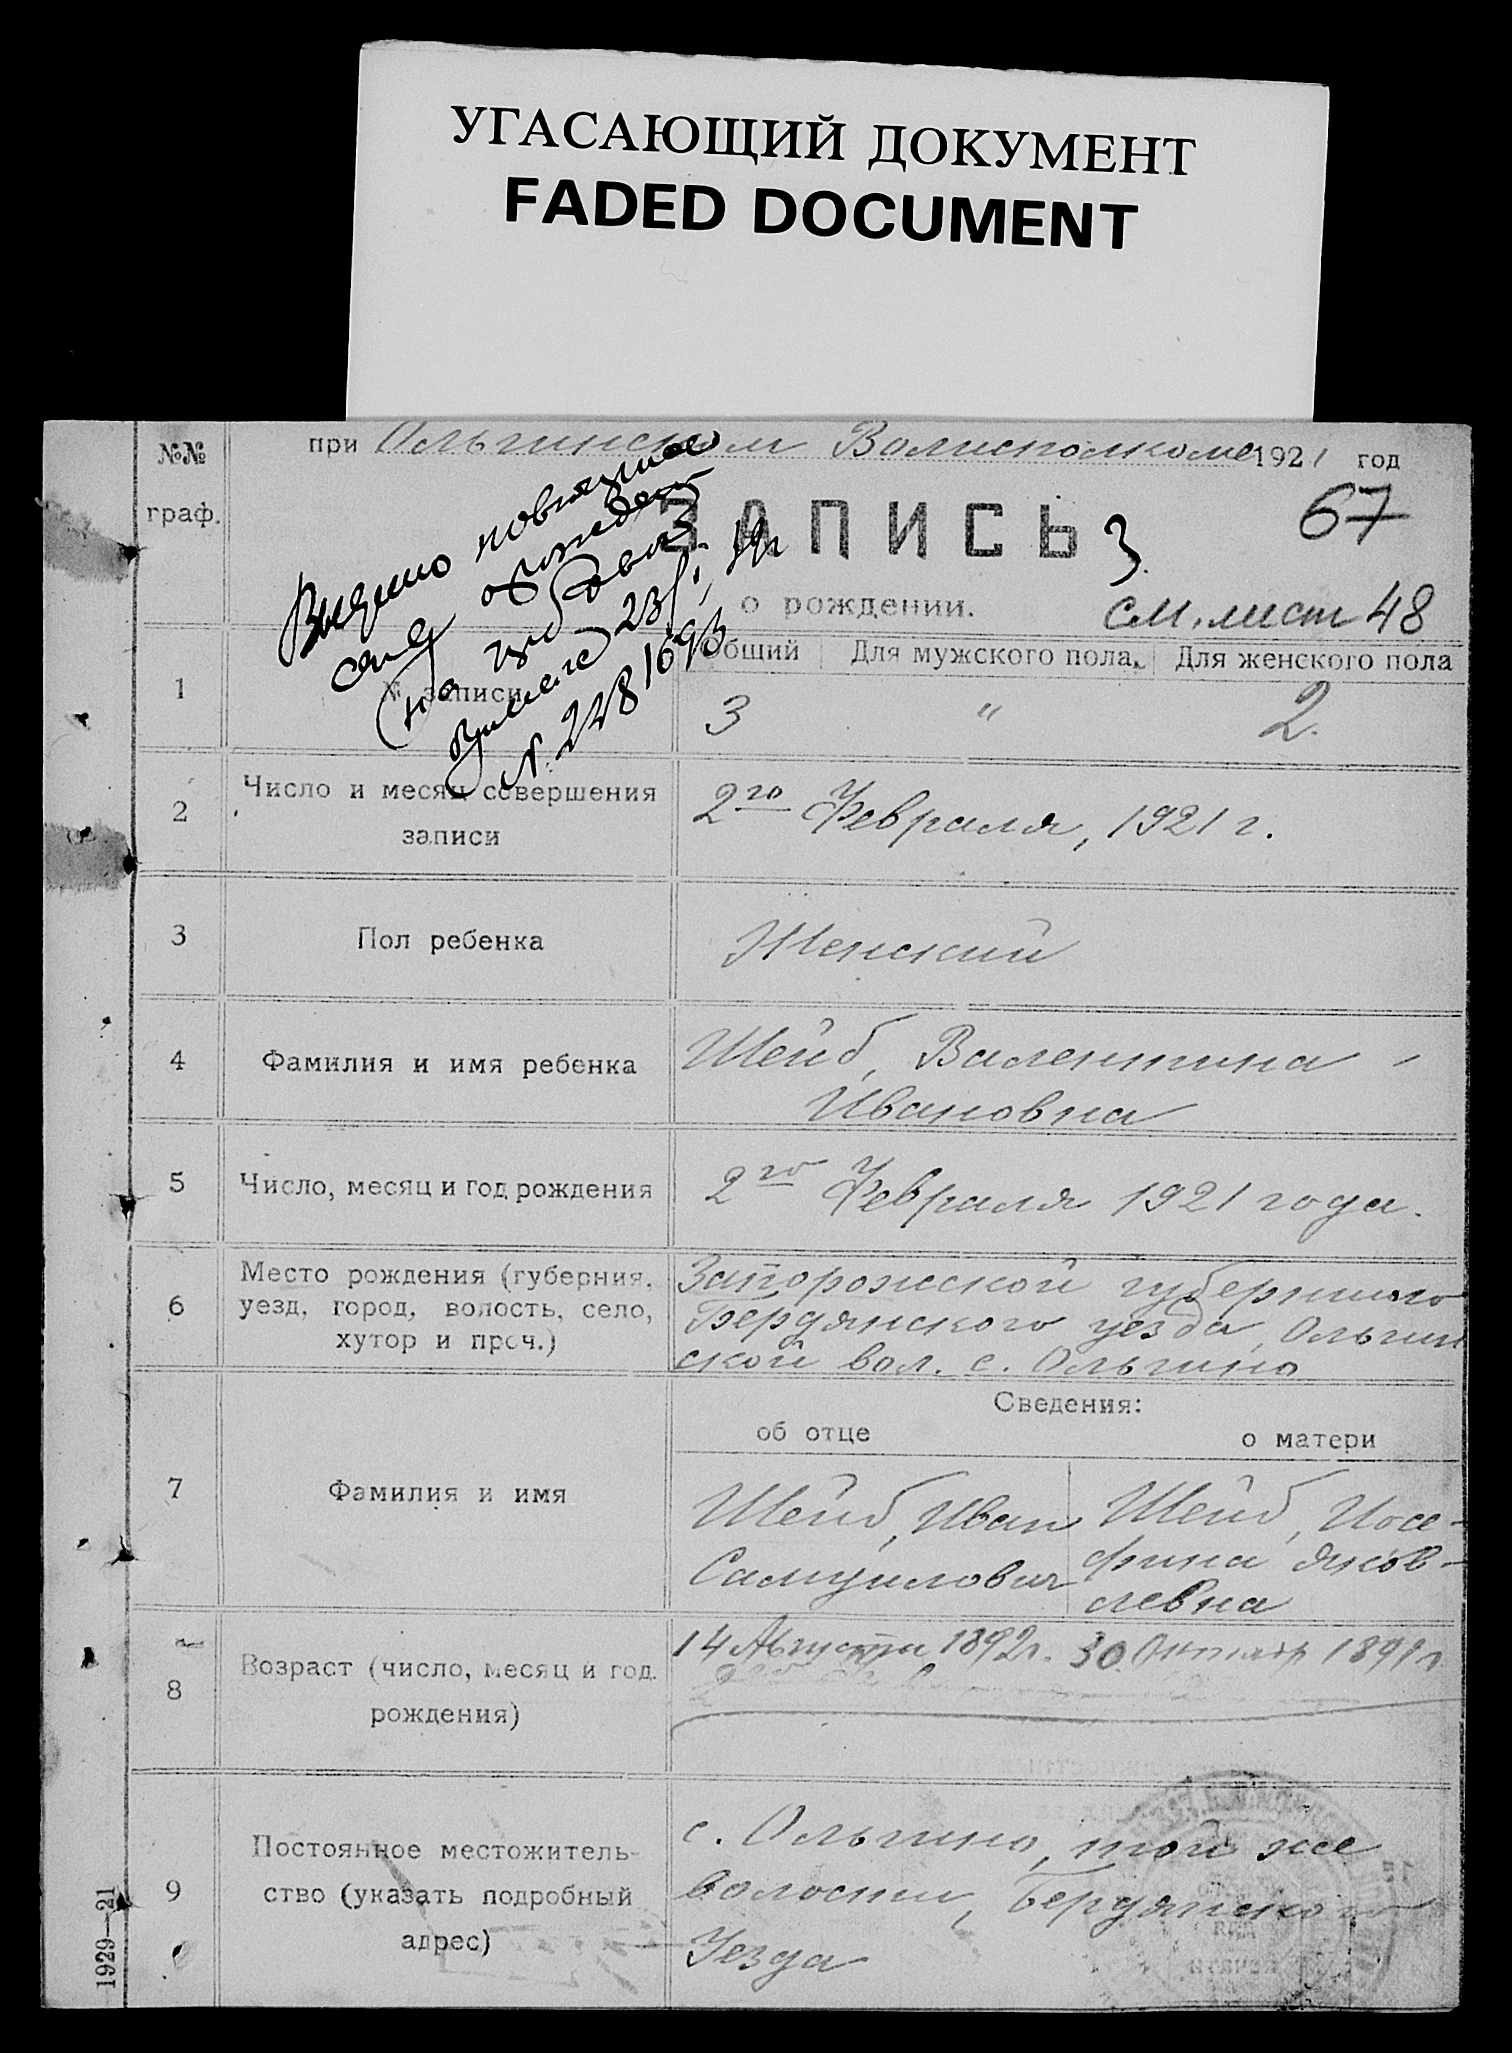 УГАСАЮЩИЙ ДОКУМЕНТ
FADED DOCUMENT
№№ граф.
при Ольгинском Волисполкоме 1921 год
67
ЗАПИСЬ 3.
о рождении.
см. лист 48
Выдано повторное
свид о рождении
на
23/
N. 248169
1
№ записи
Общий Для мужского пола. Для женского пола
3 " 2.
2
Число и месяц совершения
записи
2го Февраля, 1921 г.
3
Пол ребенка
Женский
4
Фамилия и имя ребенка
Шейб, Валентина
Ивановна
5
Число, месяц и год рождения
2го Февраля 1921 года.
6
Место рождения (губерния,
уезд, город, волость, село,
хутор и проч.)
Запорожской губернии
Бердянского уезда, Ольгин
ской вол. с. Ольгино
Сведения:
об отце о матери
7
Фамилия и имя
Шейб, Иван
Самуилович
Шейб, Иосе-
фина Яков-
левна
8
Возраст (число, месяц и год
рождения)
14 Августа 1892г. 30 Октябр 1891г
9
Постоянное местожитель-
ство (указать подробный
адрес)
с. Ольгино, той же
волости, Бердянского
Уезда
1929—21